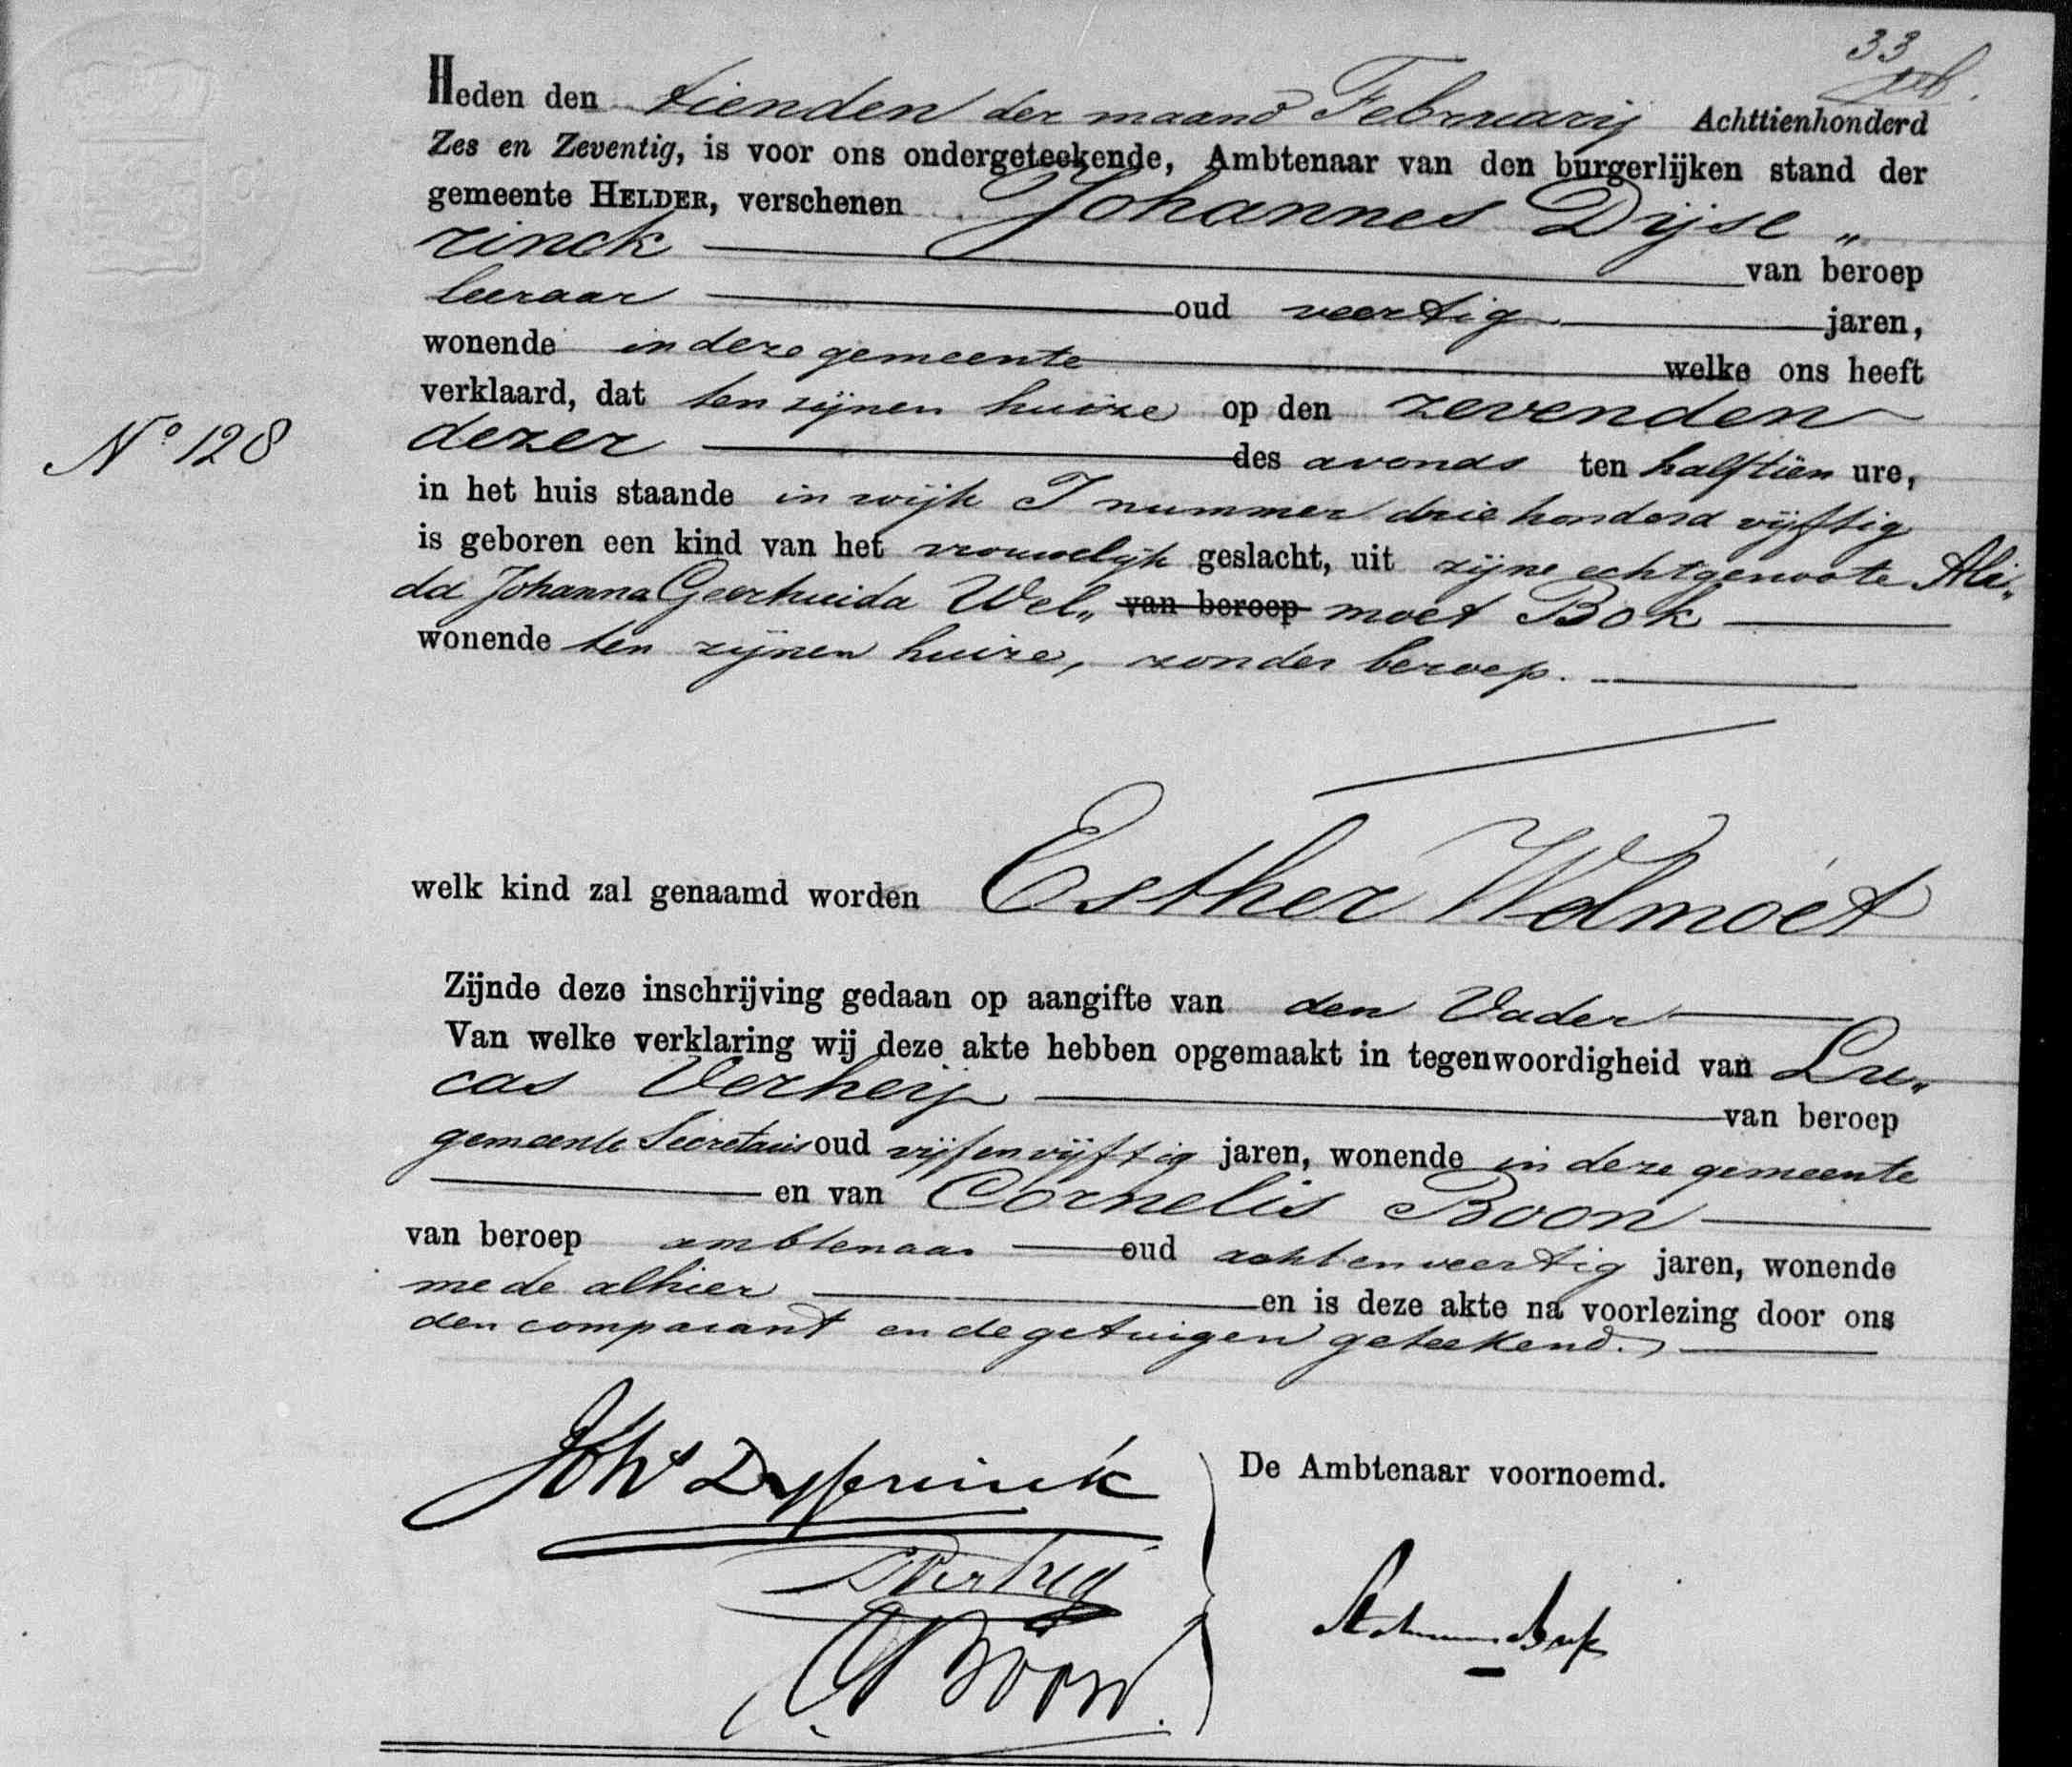 33
Heden den tienden der maand Februarij Achttienhonderd
Zes en Zeventig, is voor ons ondergeteekende, Ambtenaar van den burgerlijken stand der
gemeente HELDER, verschenen Johannes Dijse„
rinck van beroep
leeraar oud veertig jaren,
wonende in deze gemeente welke ons heeft
verklaard, dat ten zijnen huize op den zevenden
dezer des avonds ten half tien ure,
N° 128
in het huis staande in wijk I nummer drie honderd vijftig
is geboren een kind van het vrouwelijk geslacht, uit zijne echtgenoote Ali„
da Johanna Geertruida Wel„ van beroep moet Bok
wonende ten zijnen huize, zonder beroep.
welk kind zal genaamd worden Esther Welmoet
Zijnde deze inschrijving gedaan op aangifte van den Vader
Van welke verklaring wij deze akte hebben opgemaakt in tegenwoordigheid van Lu„
cas Verheij van beroep
gemeente Secretaris oud vijf en vijftig jaren, wonende in deze gemeente
en van Cornelis Boon
van beroep ambtenaar oud acht en veertig jaren, wonende
mede alhier en is deze akte na voorlezing door ons
den comparant en de getuigen geteekend.
Joh^s Dyserinck
De Ambtenaar voornoemd.
LVerheij
CBoon